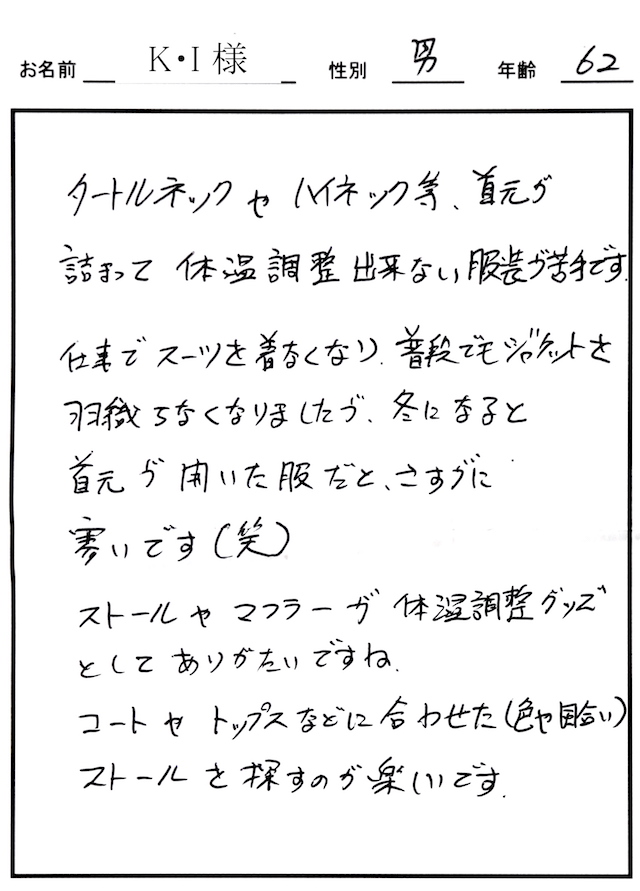 お名前 K・I 様 性別 男 年齢 62
タートルネックや ハイネック等、首元が
詰まって 体温調整出来ない服装が苦手です.
仕事でスーツを着なくなり、普段でもジャケットを
羽織らなくなりましたが、冬になると
首元が開いた服だと、さすがに
寒いです(笑)
ストールやマフラーが体温調整グッズ
としてありがたいですね.
コートやトップスなどに合わせた(色や風合い)
ストールを探すのが楽しいです.